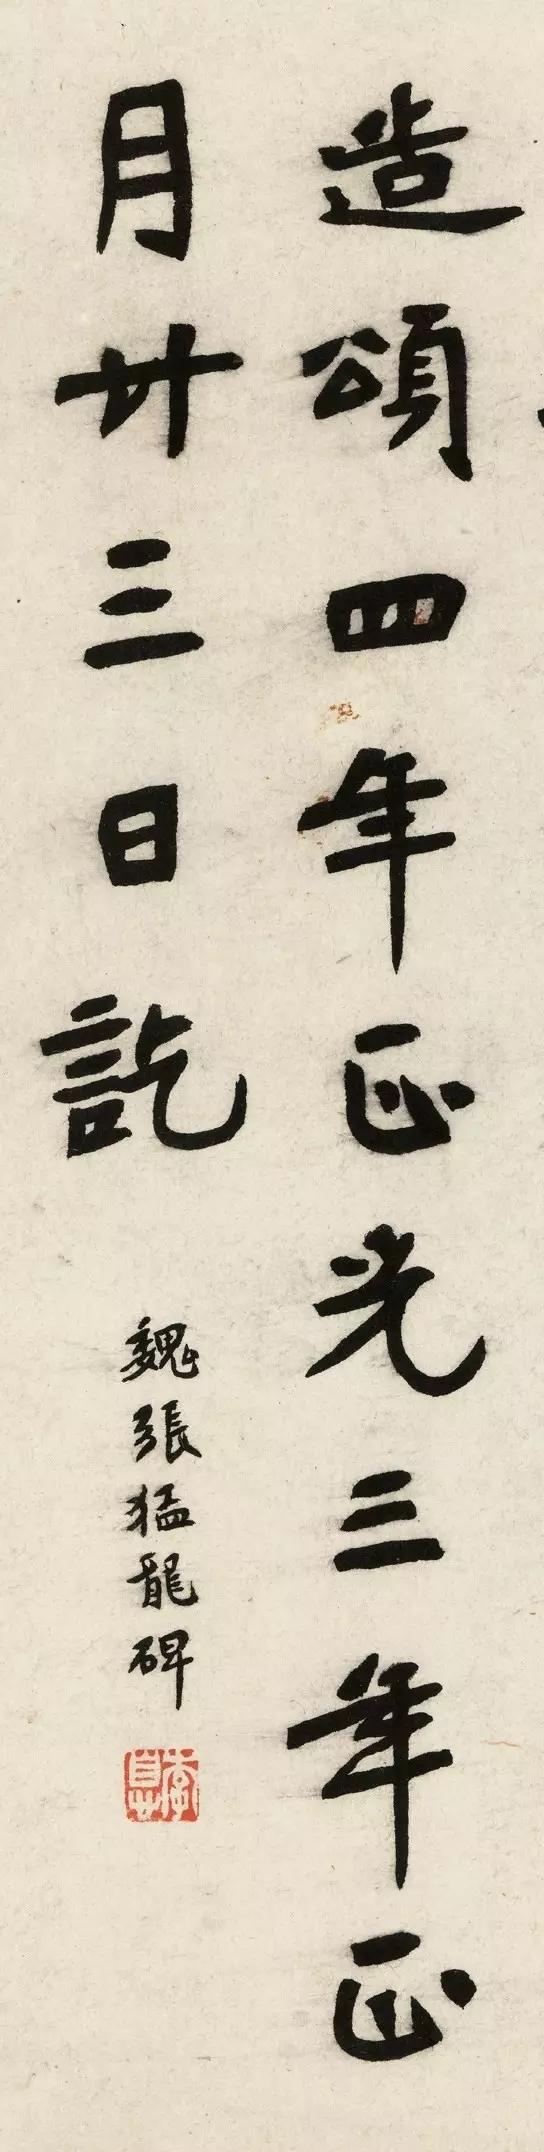 造頌四年正光三年正
月廿三日訖
魏張猛龍碑